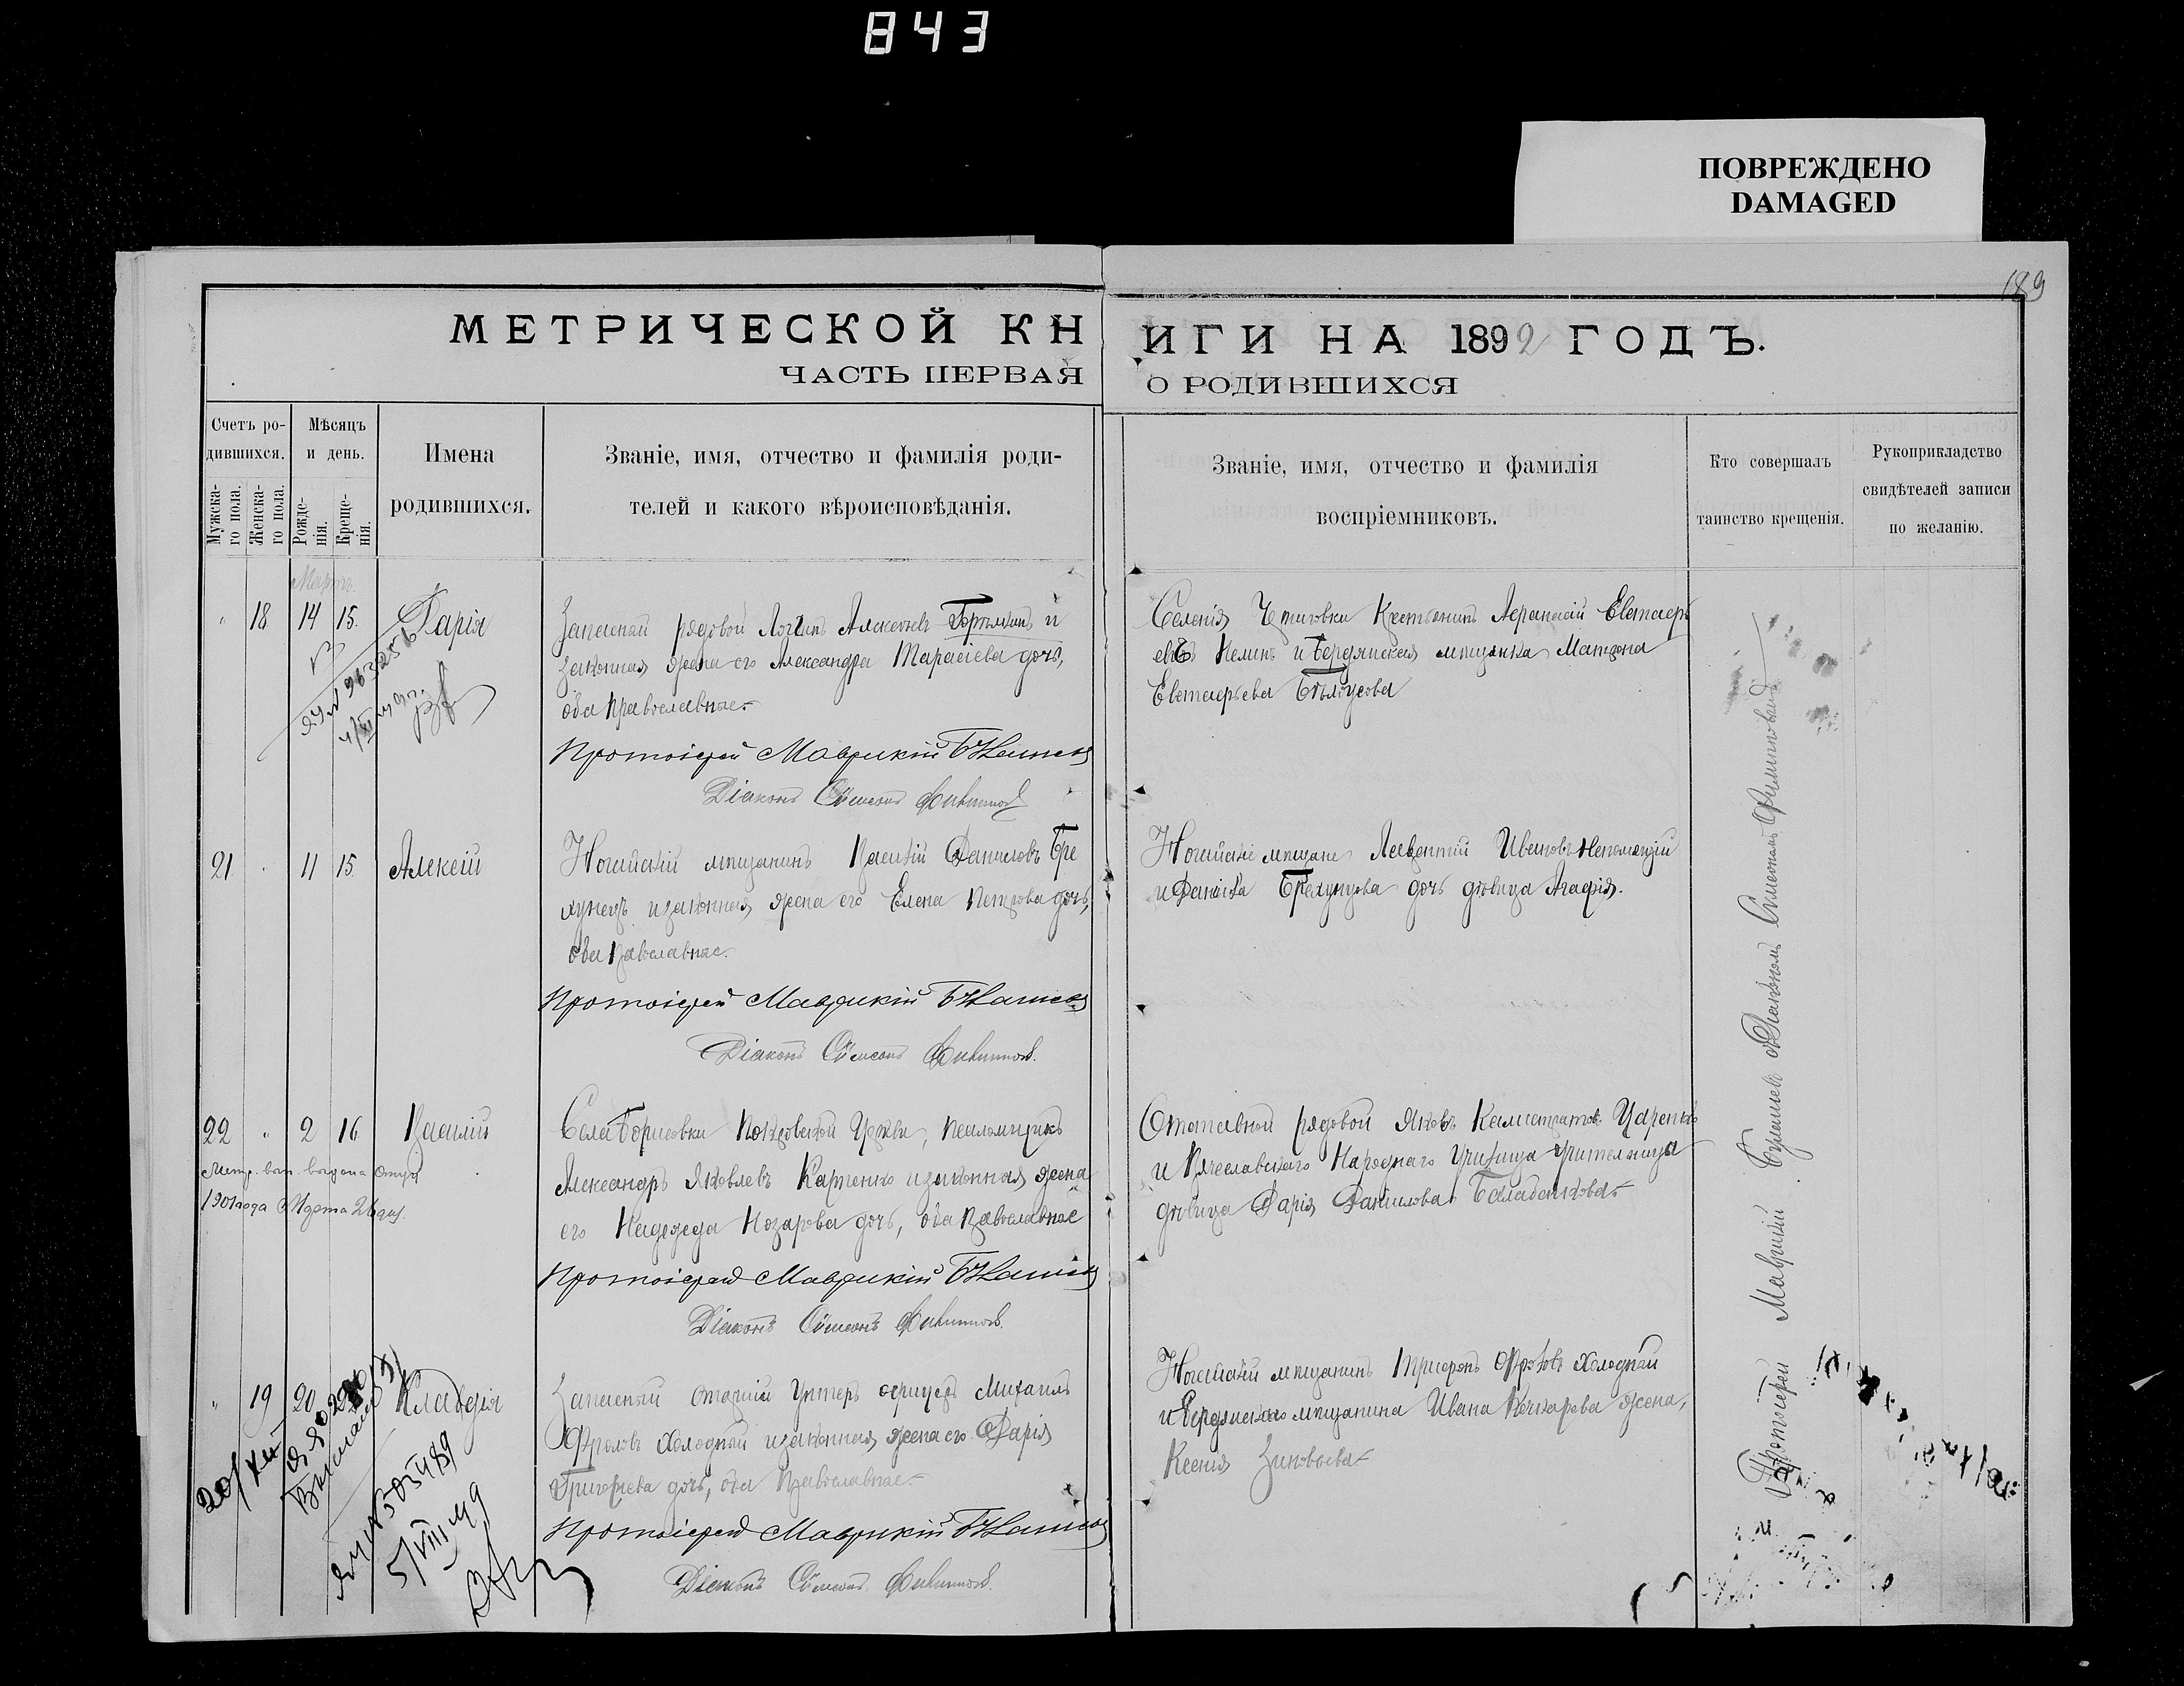 843
ПОВРЕЖДЕНО
DAMAGED
189
МЕТРИЧЕСКОЙ КНИГИ НА 1892 ГОДЪ.
ЧАСТЬ ПЕРВАЯ О РОДИВШИХСЯ
Счетъ ро-
дившихся.
Мужска-
го пола.
Женска-
го пола.
Мѣсяцъ
и день.
Рожде-
нія.
Креще-
нія.
Имена
родившихся.
Званіе, имя, отчество и фамилія роди-
телей и какого вѣроисповѣданія.
Званіе, имя, отчество и фамилія
воспріемниковъ.
Кто совершалъ
таинство крещенія.
Рукоприкладство
свидѣтелей записи
по желанію.
Мартъ
" 18 14 15. Дарія
Запасный рядовой Логинъ Алексѣевъ и
законная жена его Александра Тарасіева дочь,
оба православные.
Протоіерей Маврикій
Діаконъ Сѵмеонъ Филипповъ
Селенія крестьянинъ Афанасій Евстафі
евъ и Бердянская мѣщанка Матрона
Евстафьева Бѣлоусова
21 " 11 15 Алексій
Ногайскій мѣщанинъ Василій Даниловъ Бре
хунецъ и законная жена его Елена Петрова дочь,
оба православные.
Протоіерей Маврикій
Діаконъ Сѵмеонъ Филипповъ.
Ногайскіе мѣщане Леонтій Ивановъ Непомящій
и Даніила Брехунцова дочь дѣвица Агафія.
22 " 2 16 Василій
1901 года Марта 26 дня.
Села Борисовки Покровской Церкви, псаломщикъ
Александръ Яковлевъ Карпенко и законная жена
его Надежда Назарова дочь, оба православные
Протоіерей Маврикій
Діаконъ Сѵмеонъ Филипповъ.
Отставной рядовой Яковъ Калистратовъ Царенко
и Народнаго Училища учительница
дѣвица Дарія Даніилова Балабанкова
" 19 20 22 Клавдія
№ 503489
5/VIII
Запасный старшій Унтеръ офицеръ Михаилъ
Фроловъ Холодный и законная жена его Дарія
Григорьева дочь, оба православные
Протоіерей Маврикій
Діаконъ Сѵмеонъ Филипповъ.
Ногайскій мѣщанинъ Трифонъ Фроловъ Холодный
и Бердянскаго мѣщанина Ивана жена,
Ксенія Зиновьева
Протоіерей Маврикій съ Діакономъ Сѵмеономъ Филипповымъ